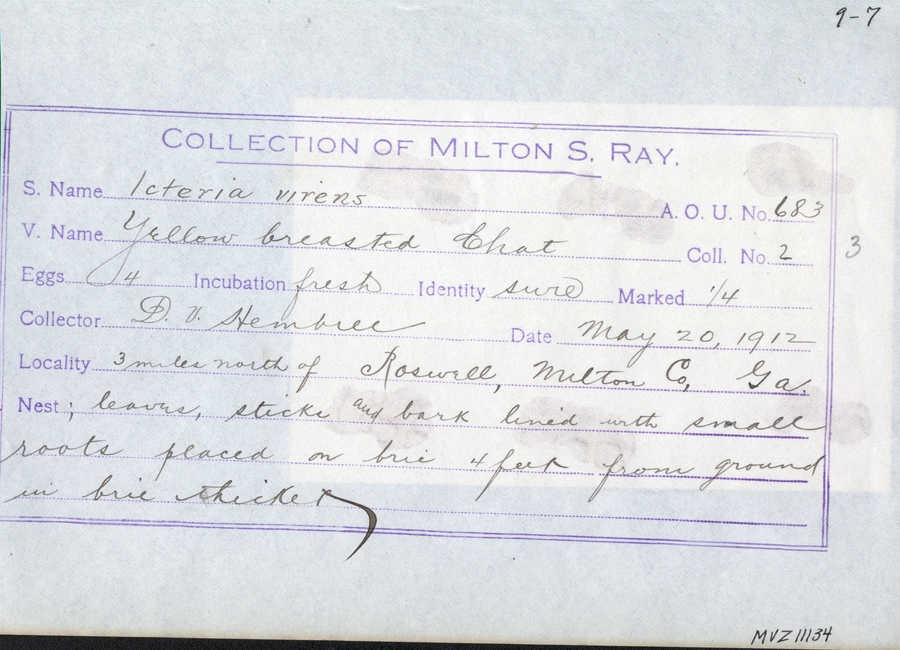 9-7
COLLECTION OF MILTON S. RAY.
S. Name Icteria virens A. O. U. No. 683
V. Name Yellow breasted Chat Coll. No. 2
3
Eggs 4 Incubation fresh Identity sure Marked 1/4
Collector D. V. Hembree Date May 20, 1912
Locality 3 miles north of Roswell, Milton Co, Ga.
Nest; leaves, sticks and bark lined with small
roots placed on brie 4 feet from ground
in brie thicket
MVZ11134